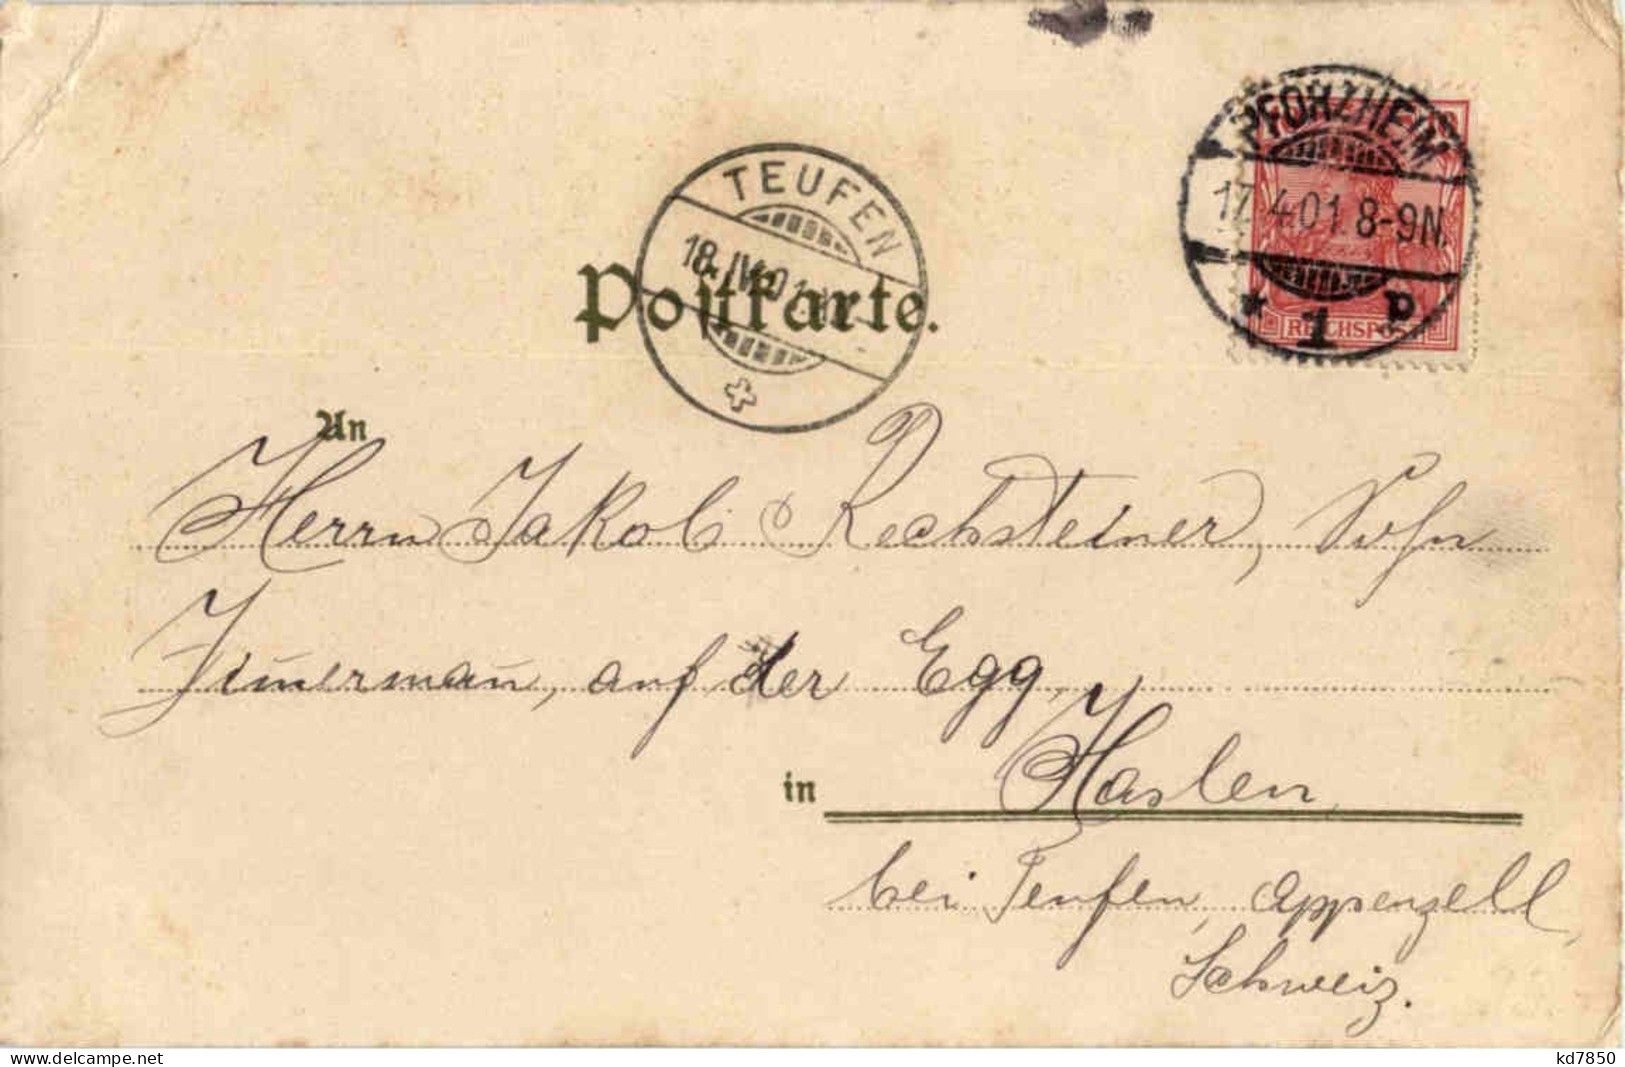 PFORZHEIM
17.4.01.8-9N.
* 1 p
REICHSPOST
TEUFEN
18.IV.01
Postkarte.
An
Herrn Jakob Rechsteiner, Sohn
Zimerman, auf der Egg,
in Haslen,
bei Teufen, Appenzell,
Schweiz.
www.delcampe.net
kd7850